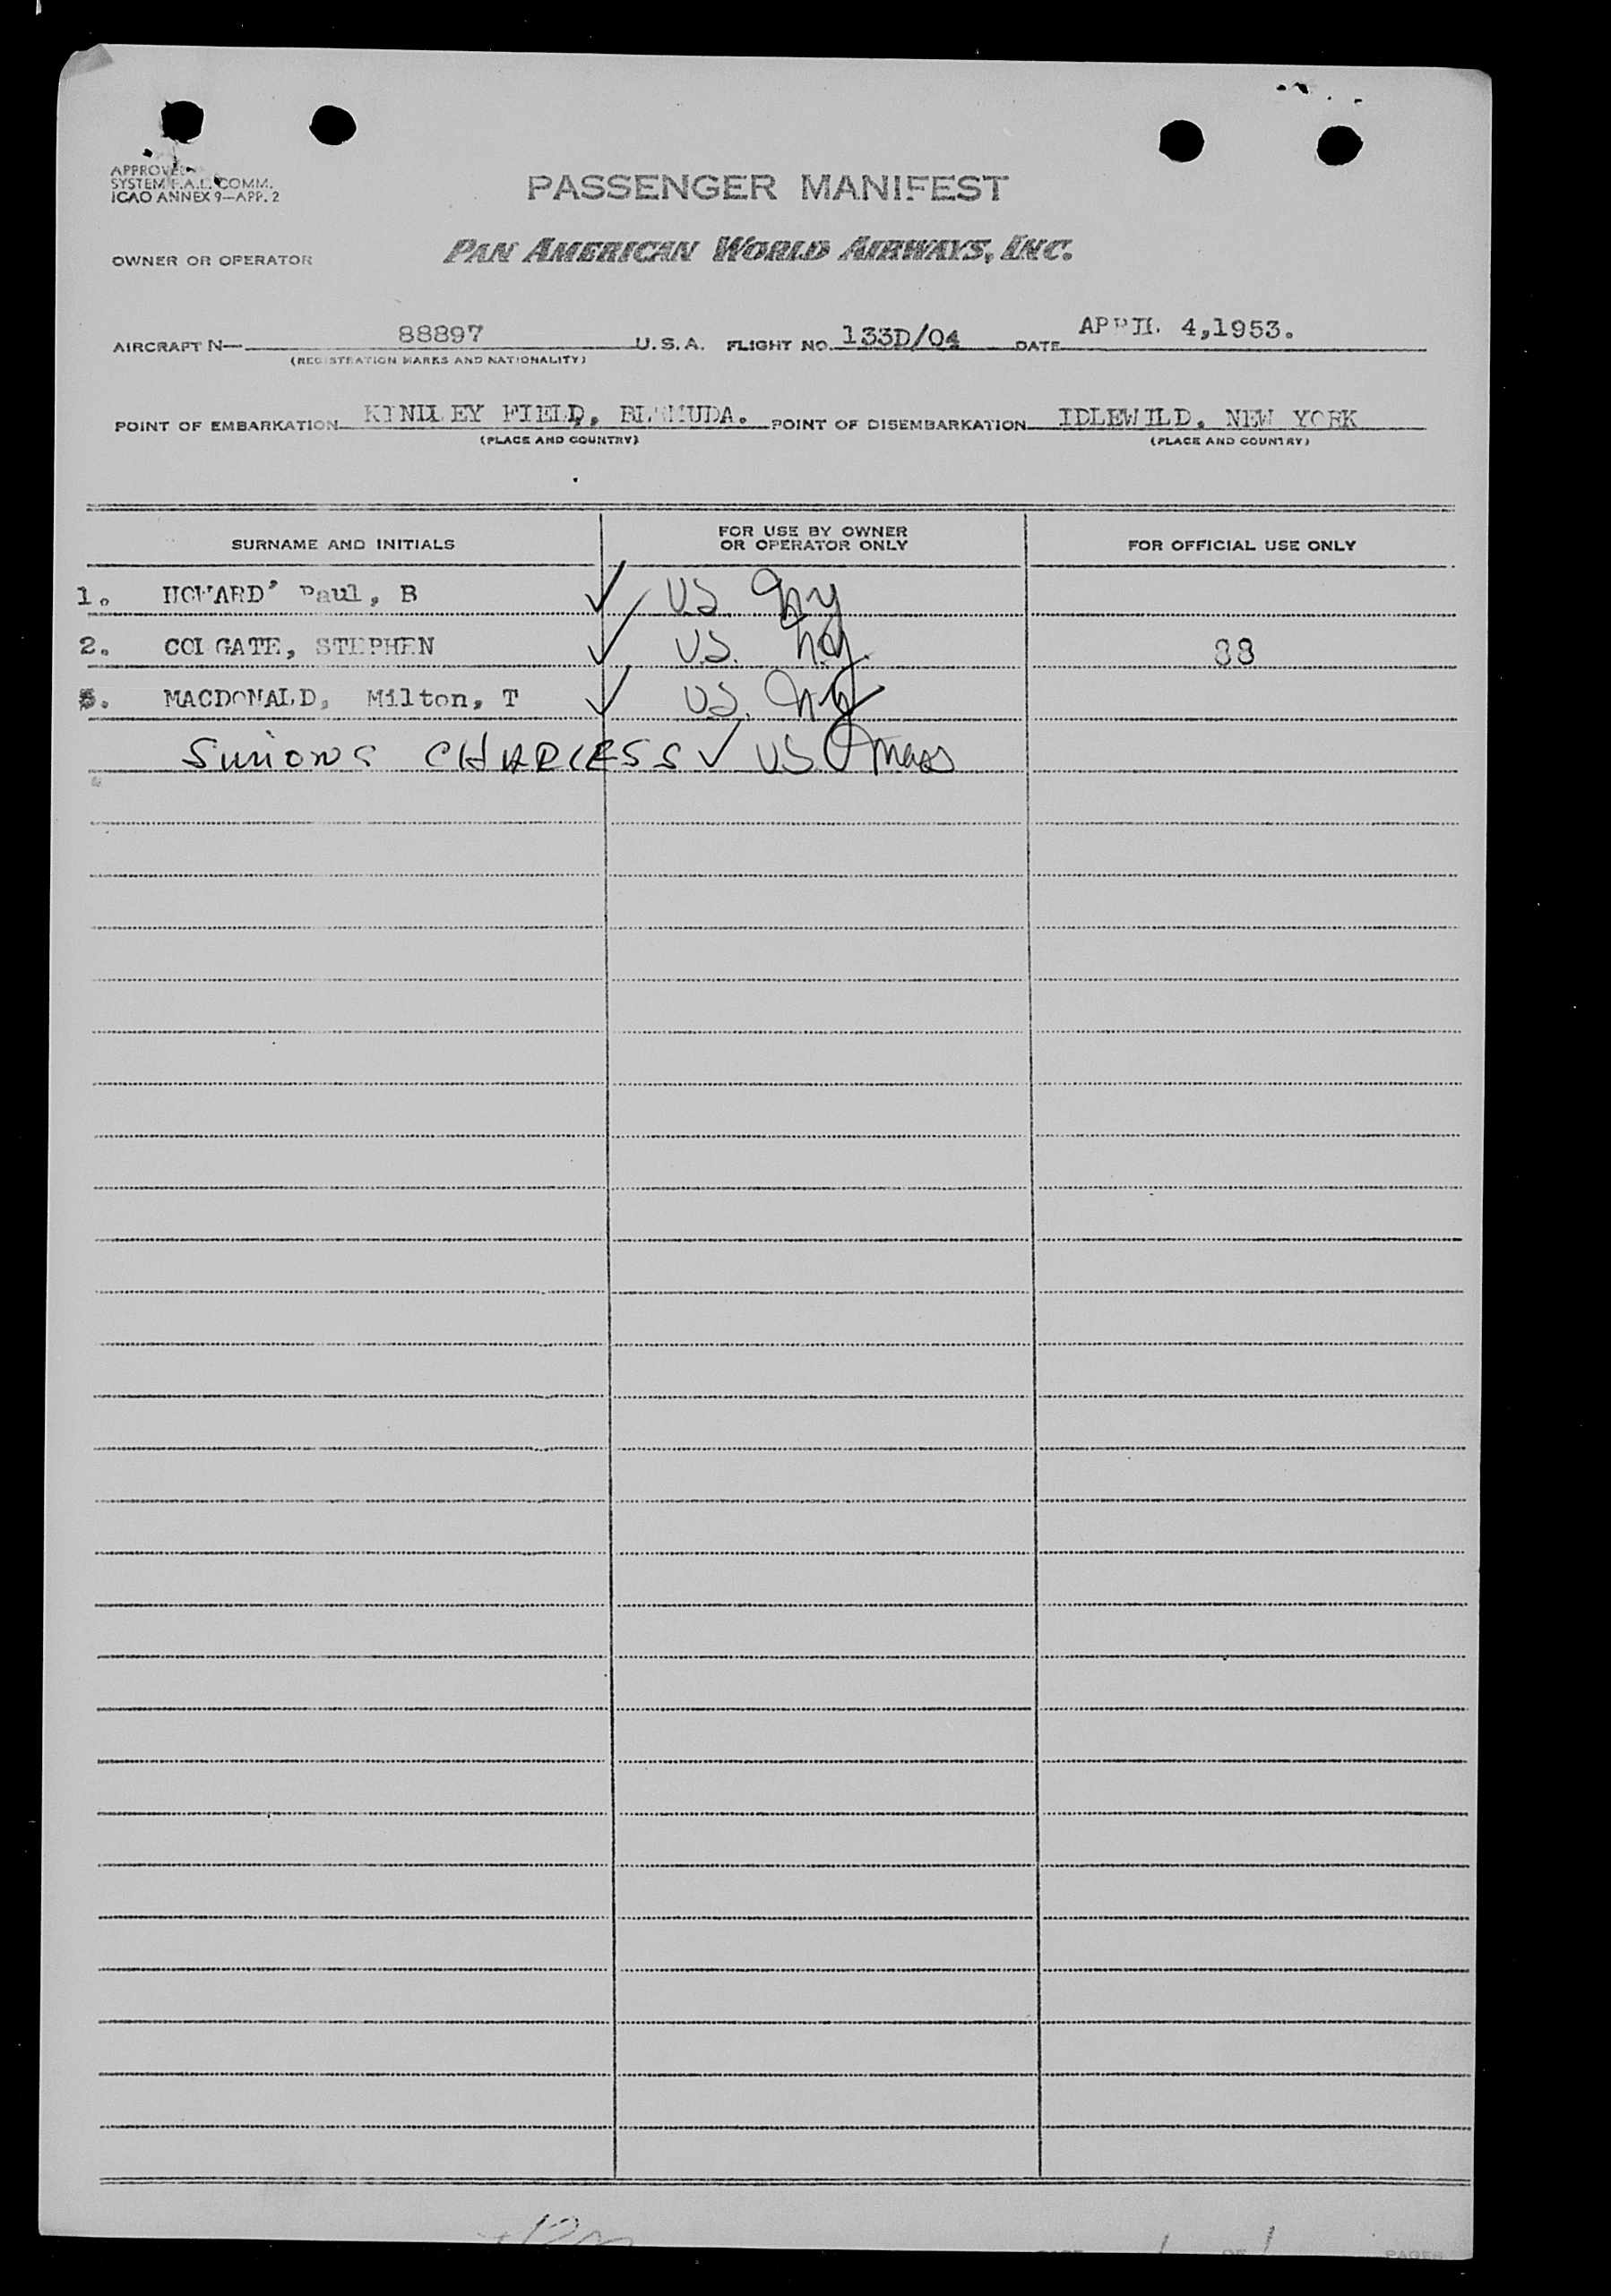 APPROVED
SYSTEM F.A.L. COMM.
ICAO ANNEX 9—APP. 2
PASSENGER MANIFEST
OWNER OR OPERATOR PAN AMERICAN WORLD AIRWAYS, INC.
AIRCRAFT N— 88897 U.S.A. FLIGHT NO. 133D/04 DATE APRIL 4,1953.
(REGISTRATION MARKS AND NATIONALITY)
POINT OF EMBARKATION KINDLEY FIELD, BERMUDA. POINT OF DISEMBARKATION IDLEWILD, NEW YORK
(PLACE AND COUNTRY) (PLACE AND COUNTRY)
SURNAME AND INITIALS FOR USE BY OWNER OR OPERATOR ONLY FOR OFFICIAL USE ONLY
1. HOWARD' Paul, B ✓ U.S. NY
2. COLGATE, STEPHEN ✓ U.S. N.Y. 88
3. MACDONALD, Milton, T ✓ U.S. NY
Simons CHARLES S ✓ U.S. Mass
PAGE 1 OF 1 PAGES